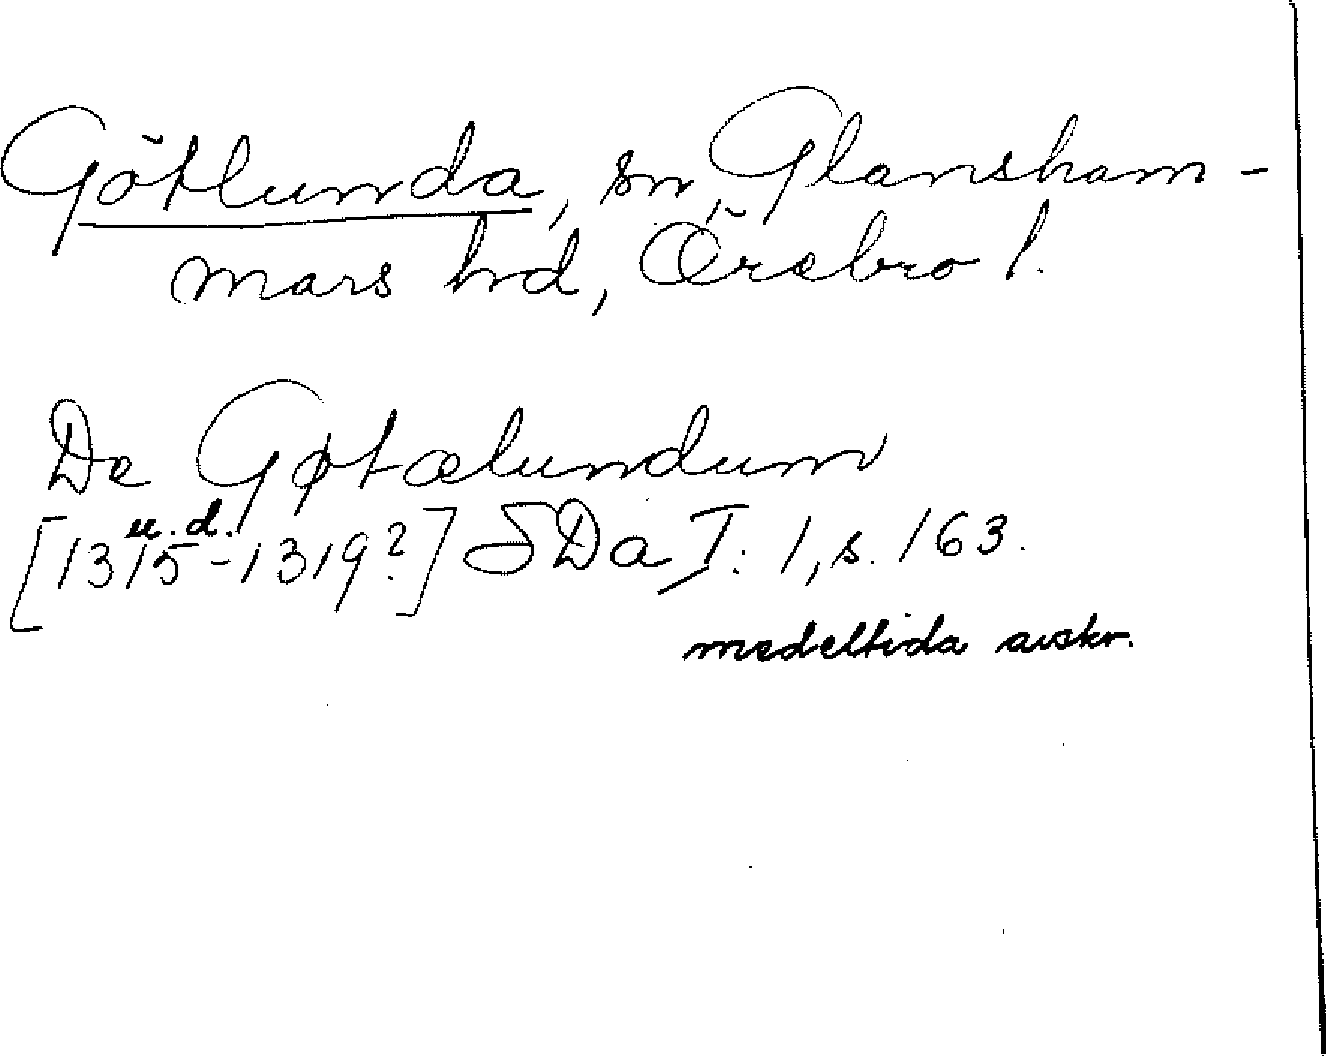 Götlunda, sn, Glansham-
mars hd, Örebro l.
De Gøtælundum
u. d.
[1315-1319?] SDa I: 1, s. 163.
medeltida avskr.